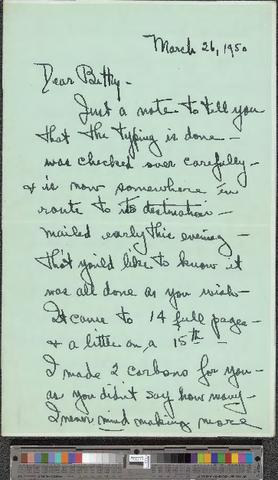 March 26, 1950
Dear Betty -
Just a note to tell you
that the typing is done -
was checked over carefully -
& is now somewhere in
route to its destination -
mailed early this evening -
Tho't you'd like to know it
was all done as you wish -
It came to 14 full pages -
& a little on a 15th -
I made 2 carbons for you -
as you didn't say how many -
I never mind making more